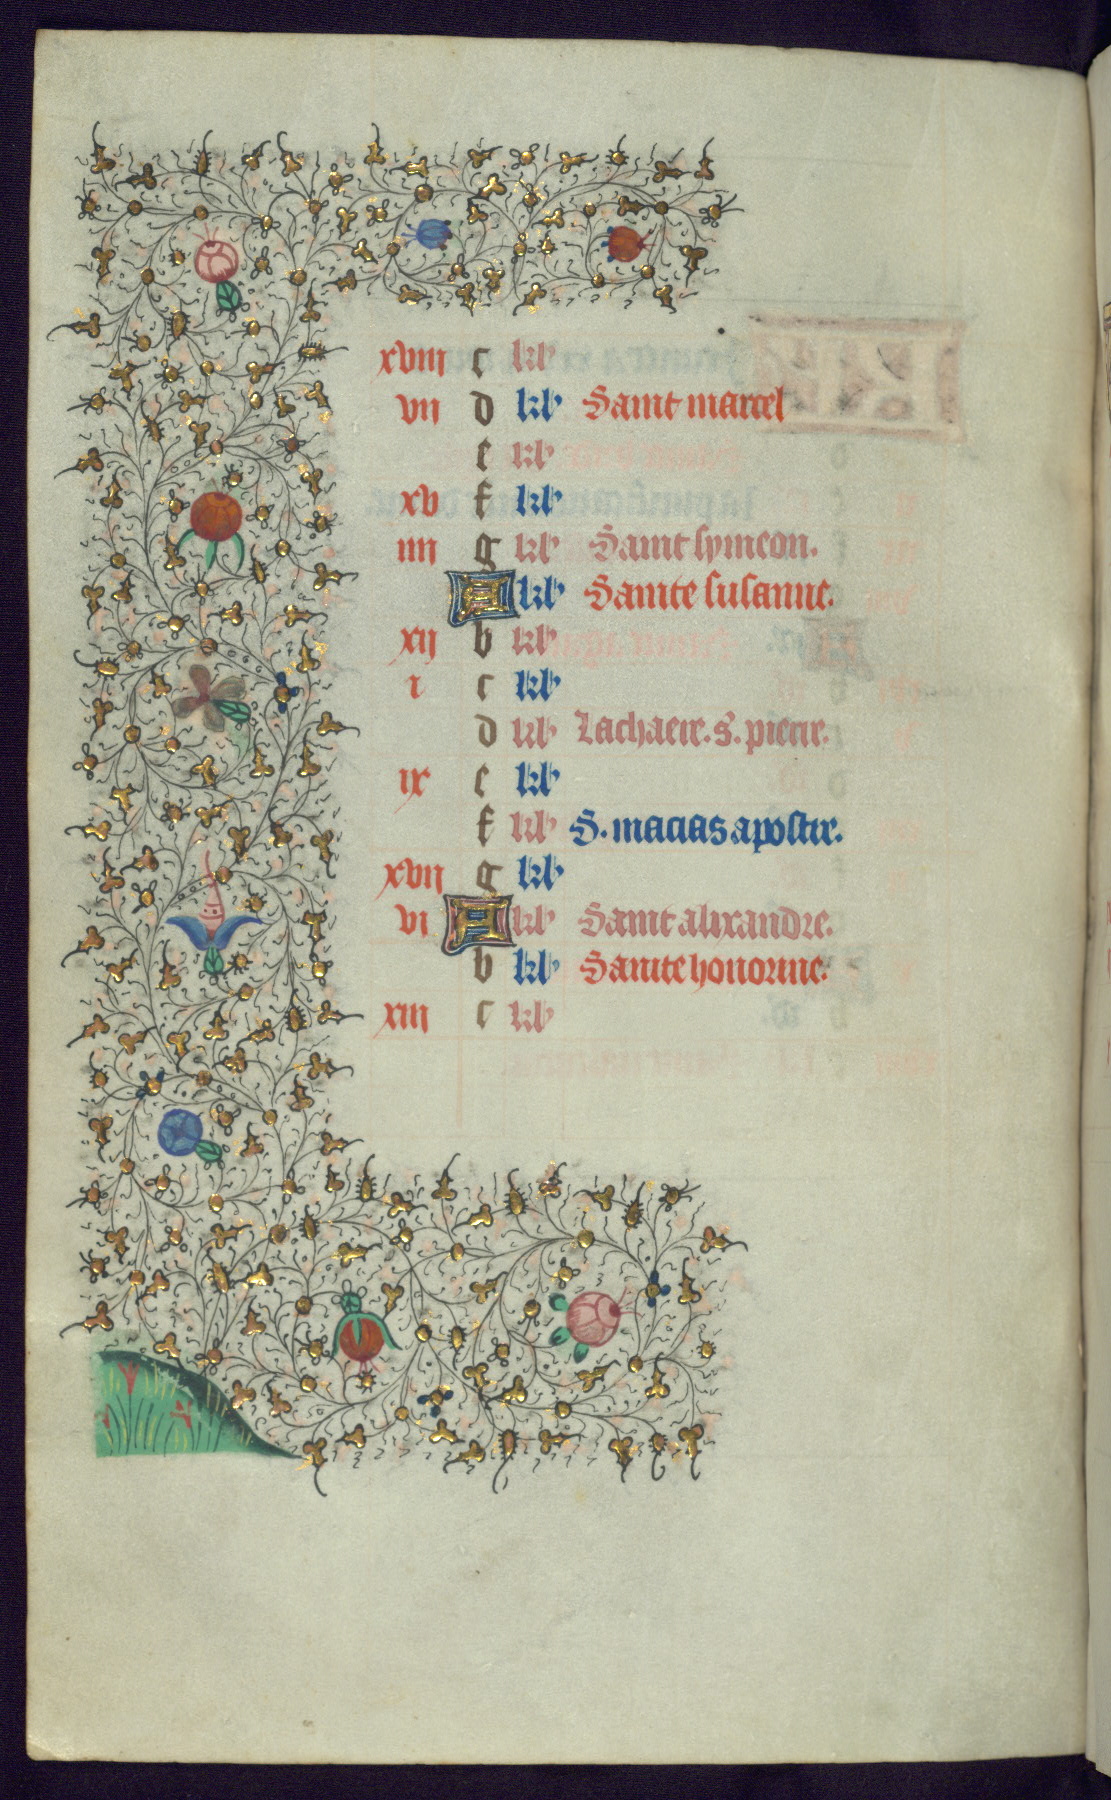 xviii c kl
vii d kl Saint marcel
e kl
xv f kl
iiii g kl Saint symeon.
A kl Sainte susanne.
xii b kl
i c kl
d kl La chaere. s. pierre.
ix e kl
f kl S. macias apostre.
xvii g kl
vi A kl Saint alixandre.
b kl Sainte honorine.
xiiii c kl